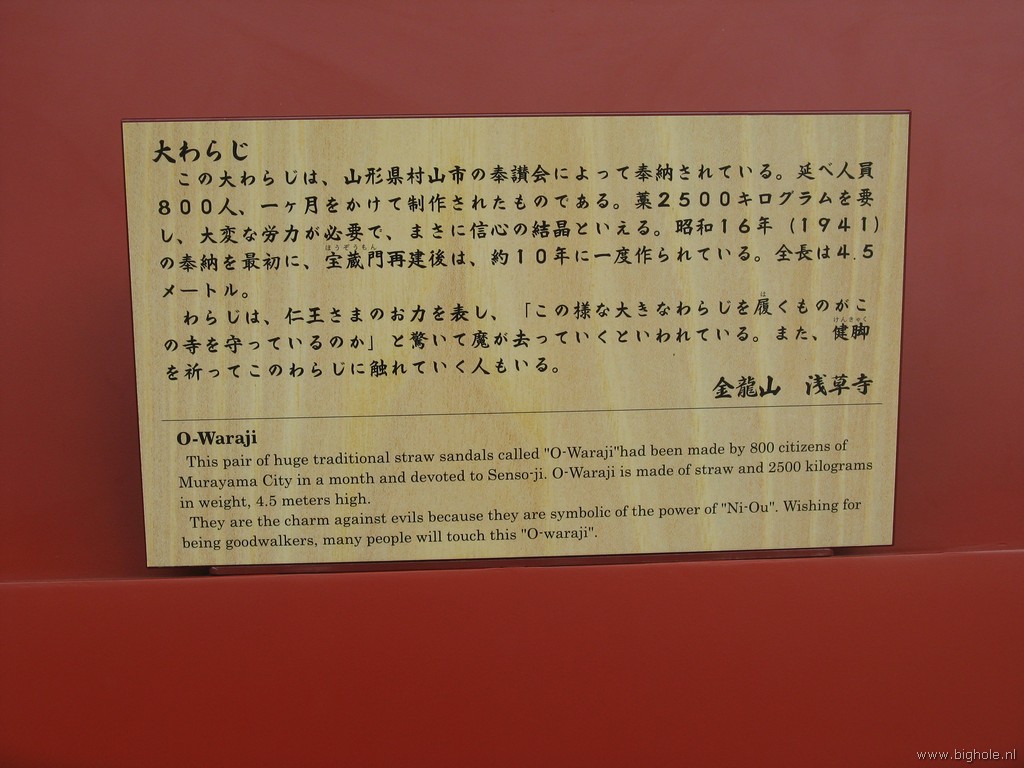 大わらじ
この大わらじは、山形県村山市の奉讃会によって奉納されている。延べ人員
800人、一ヶ月をかけて制作されたものである。藁2500キログラムを要
し、大変な労力が必要で、まさに信心の結晶といえる。昭和16年(1941)
ほうぞうもん
の奉納を最初に、宝蔵門再建後は、約10年に一度作られている。全長は4.5
メートル。
は
わらじは、仁王さまのお力を表し、「この様な大きなわらじを履くものがこ
けんきゃく
の寺を守っているのか」と驚いて魔が去っていくといわれている。また、健脚
を祈ってこのわらじに触れていく人もいる。
金龍山 浅草寺
O-Waraji
This pair of huge traditional straw sandals called "O-Waraji"had been made by 800 citizens of
Murayama City in a month and devoted to Senso-ji. O-Waraji is made of straw and 2500 kilograms
in weight, 4.5 meters high.
They are the charm against evils because they are symbolic of the power of "Ni-Ou". Wishing for
being goodwalkers, many people will touch this "O-waraji".
www.bighole.nl